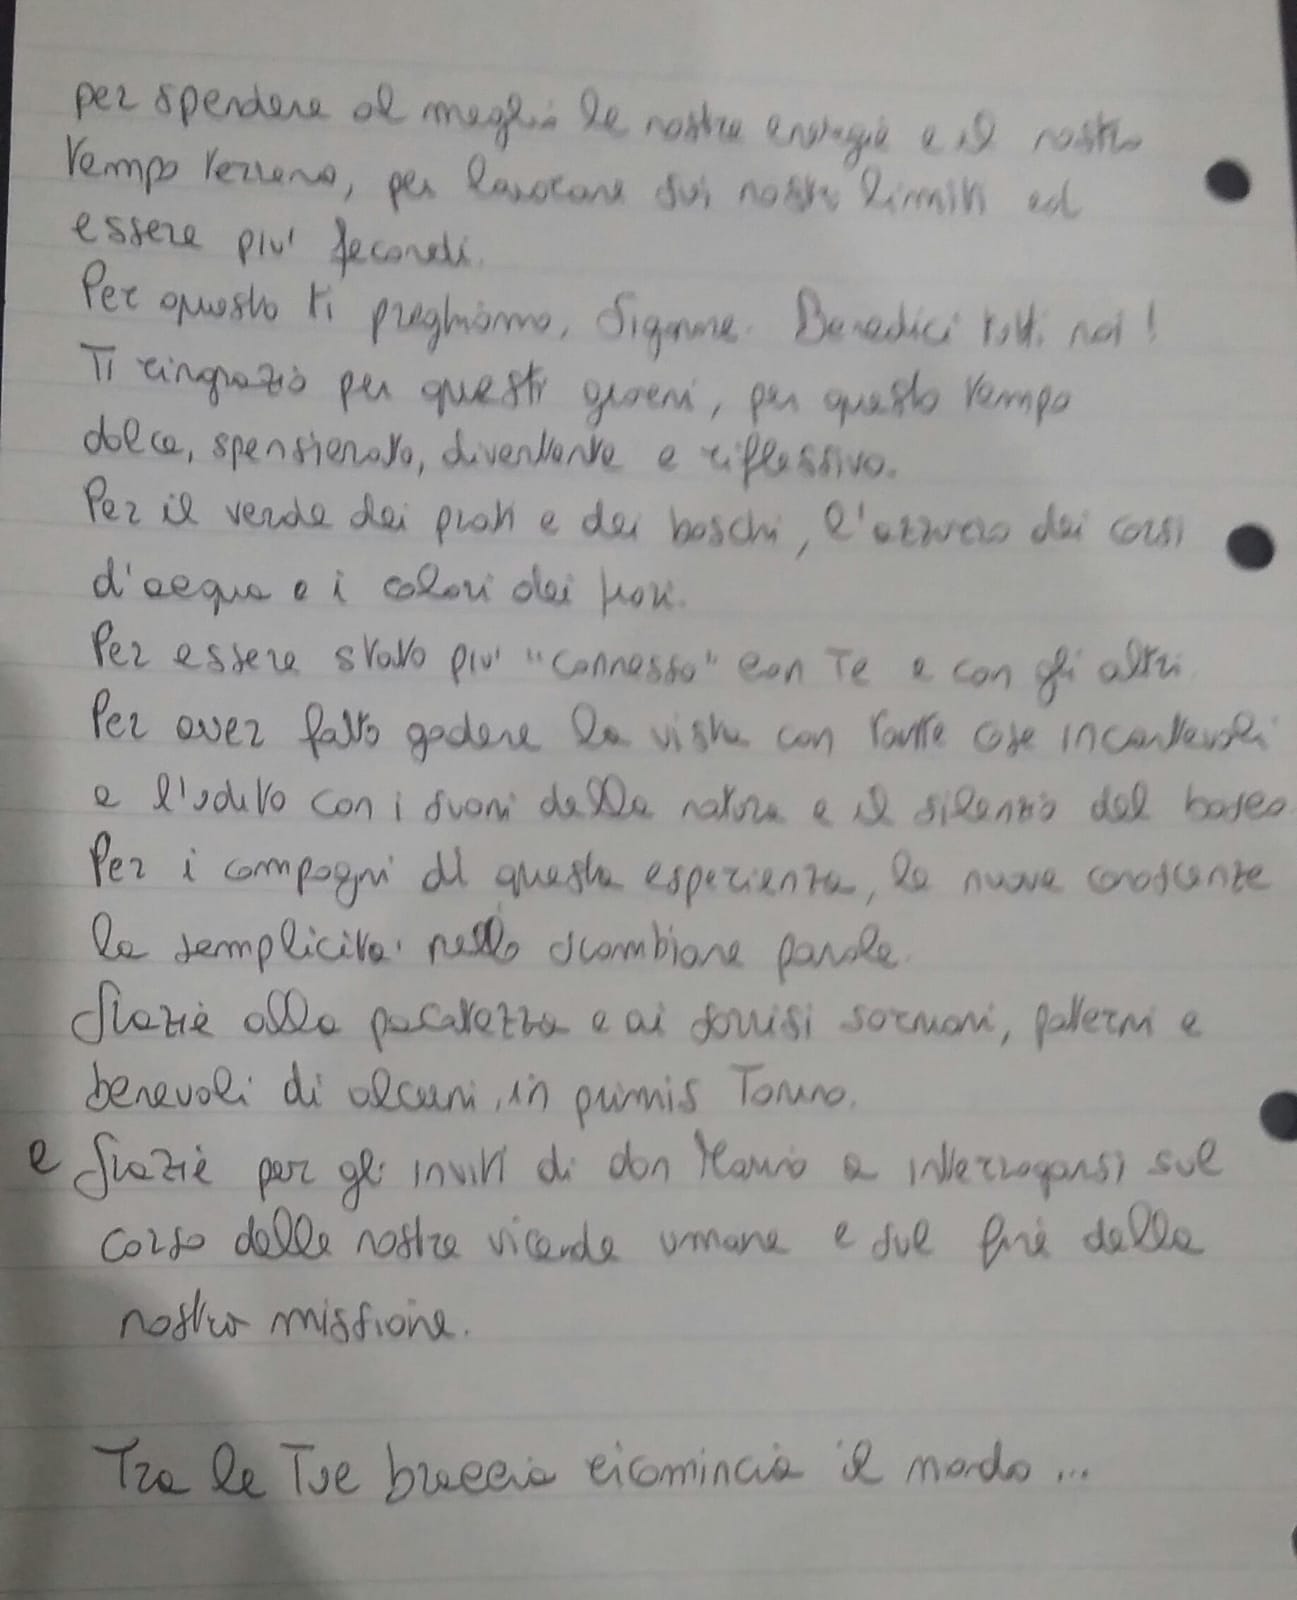 per spendere al meglio le nostre energie e il nostro
tempo terreno, per lavorare sui nostri limiti ed
essere piu' fecondi.
Per questo ti preghiamo, Signore. Benedici tutti noi!
Ti ringrazio per questi giorni, per questo tempo
dolce, spensierato, divertente e riflessivo.
Per il verde dei prati e dei boschi, l'azzurro dei corsi
d'acqua e i colori dei fiori.
Per essere stato piu' "connesso" con Te e con gli altri.
Per aver fatto godere la vista con tante cose incantevoli
e l'udito con i suoni della natura e il silenzio del bosco.
Per i compagni di questa esperienza, le nuove conoscenze
la semplicita' nello scambiare parole.
Grazie alla pacatezza e ai sorrisi sornioni, paterni e
benevoli di alcuni, in primis
e Grazie per gli inviti di don Mario a interrogarsi sul
corso delle nostre vicende umane e sul fine della
nostra missione.
Tra le Tue braccia ricomincia il mondo...